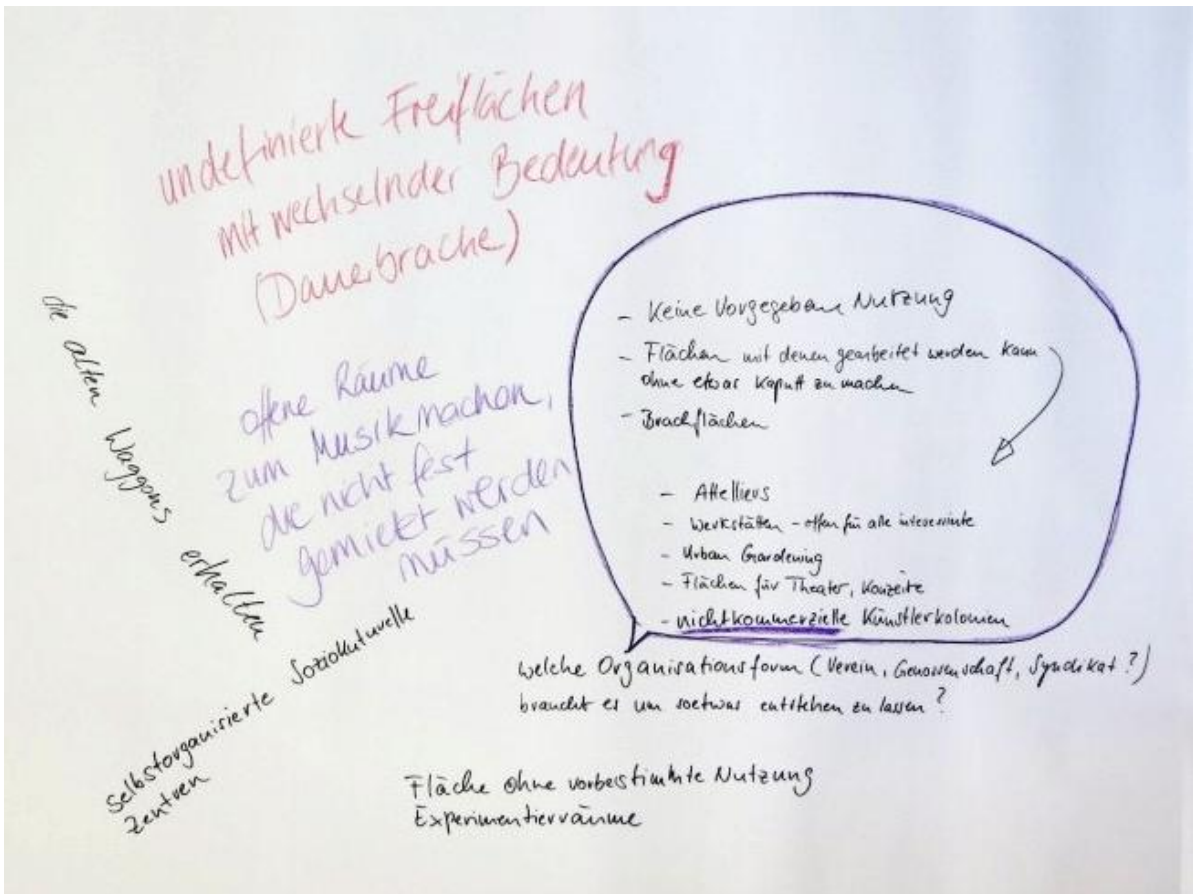 undefinierte Freiflächen
mit wechselnder Bedeutung
(Dauerbrache)
die alten Waggons erhalten
offene Räume
zum Musikmachen,
die nicht fest
gemietet werden
müssen
- Keine Vorgegebene Nutzung
- Flächen mit denen gearbeitet werden kann
ohne etwas kaputt zu machen
- Brachflächen
- Attelliers
- Werkstätten - offen für alle interessierte
- Urban Gardening
- Flächen für Theater, Konzerte
- nichtkommerzielle Künstlerkolonien
welche Organisationsform (Verein, Genossenschaft, Syndikat?)
braucht es um soetwas entstehen zu lassen?
Selbstorganisierte Soziokulturelle
Zentren
Fläche ohne vorbestimmte Nutzung
Experimentierräume